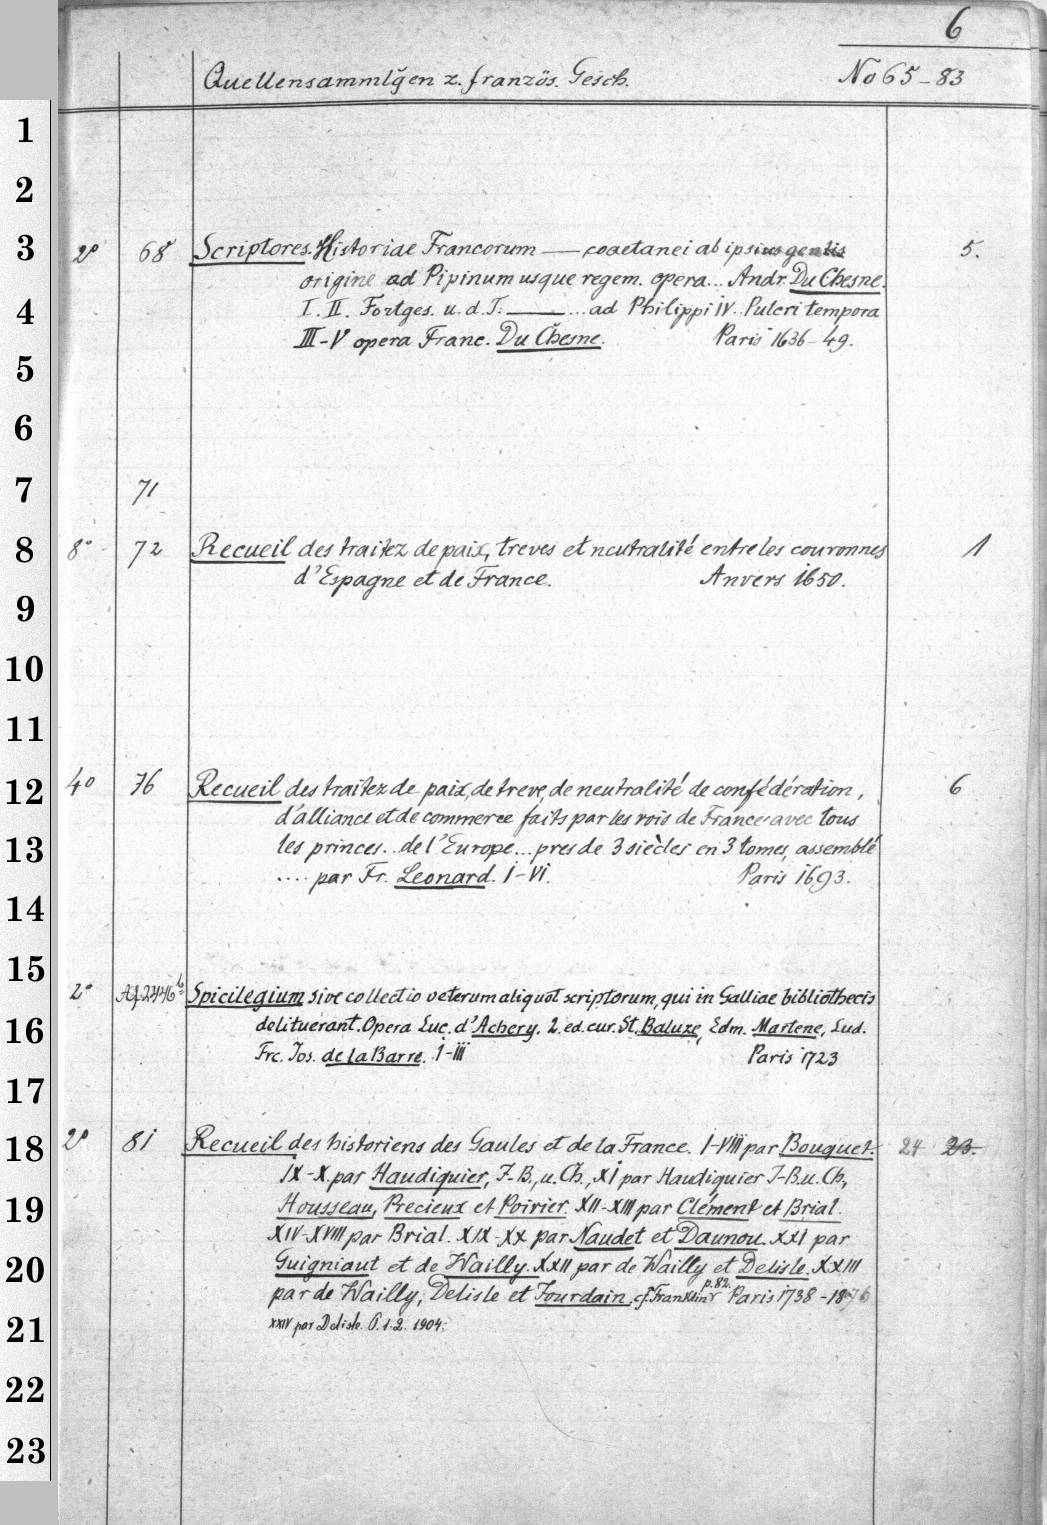 6
Quellensammlğen z. französ. Gesch. No 65-83
1
2
3 2° 68 Scriptores. Historiae Francorum — coaetanei ab ipsius gentis 5.
origine ad Pipinum usque regem. opera... Andr. Du Chesne.
4 I. II. Fortges. u. d. T. — ... ad Philippi IV. Pulcri tempora
III-V opera Franc. Du Chesne. Paris 1636-49.
5
6
7 71
8 8° 72 Recueil des traitez de paix, treves et neutralité entre les couronnes 1
d'Espagne et de France. Anvers 1650.
9
10
11
12 40 76 Recueil des traitez de paix, de treve, de neutralité de confédération, 6
d'alliance et de commerce faits par les rois de France avec tous
13 les princes... de l'Europe... pres de 3 siècles en 3 tomes, assemblé
.... par Fr. Leonard. I-VI. Paris 1693.
14
15
2° Af 2446 b Spicilegium sive collectio veterum aliquot scriptorum, qui in Galliae bibliothecis
16 delituerant. Opera Luc. d'Achery. 2. ed. cur. St. Baluze, Edm. Martene, Lud.
Frc. Jos. de la Barre. I-III Paris 1723
17
18 2° 81 Recueil des historiens des Gaules et de la France. I-VIII par Bouquet. 24 23.
IX-X. par Haudiquier, J-B., u. Ch., XI par Haudiquier J-B. u. Ch,
19 Housseau, Precieux et Poirier. XII-XIII par Clément et Brial.
XIV-XVIII par Brial. XIX-XX par Naudet et Daunou. XXI par
20 Guigniaut et de Wailly. XXII par de Wailly et Delisle. XXIII
par de Wailly, Delisle et Jourdain. cf. Franklin p. 82. Paris 1738-1876
21 XXIV par Delisle. P. 1. 2. 1904.
22
23